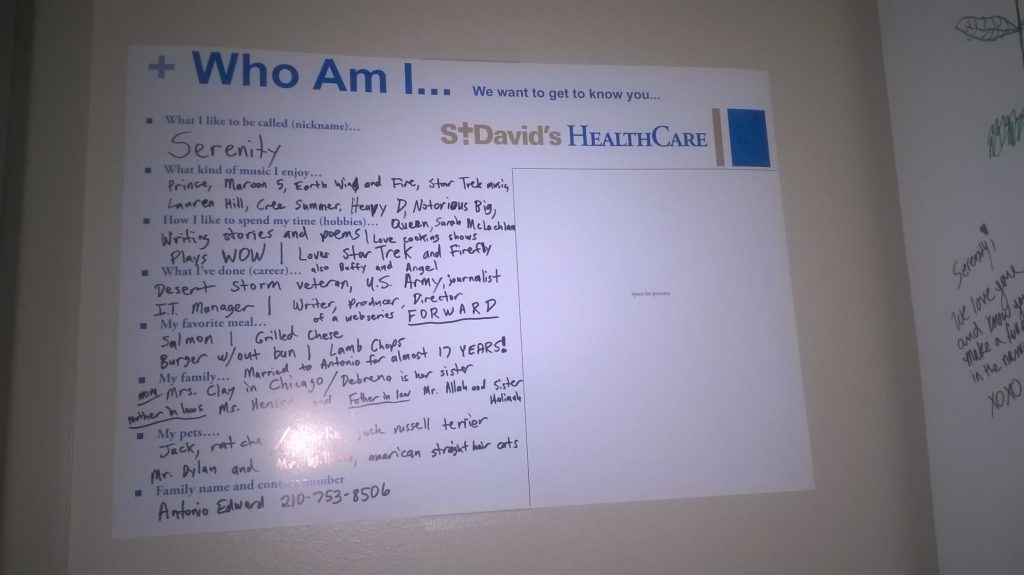 + Who Am I... We want to get to know you...
What I like to be called (nickname)...
St David's HEALTHCARE
Serenity
What kind of music I enjoy...
Prince, Maroon 5, Earth Wind and Fire, Star Trek music,
Lauren Hill, Cree Summer, Heavy D, Notorious Big,
How I like to spend my time (hobbies)... Queen, Sarah McLochlan
Writing stories and poems | Love cooking shows
Plays WOW | Loves Star Trek and Firefly
What I've done (career)... also Buffy and Angel
Desert Storm veteran, U.S. Army, journalist
I.T. Manager | Writer, Producer, Director
of a webseries FORWARD
My favorite meal...
Salmon | Grilled Chese
Burger w/out bun | Lamb Chops
My family... Married to Antonio for almost 17 YEARS!
mom Mrs. Clay in Chicago / Debrena is her sister
mother in laws Ms. and Father in law Mr. Allah and Sister
Haliyah
My pets....
Jack, rat jack russell terrier
Mr. Dylan and american straight hair cats
Family name and contact number
Antonio Edward 210-753-8506
Space for pictures
Serenity,
We love you
and know
make a
in the
XOXO